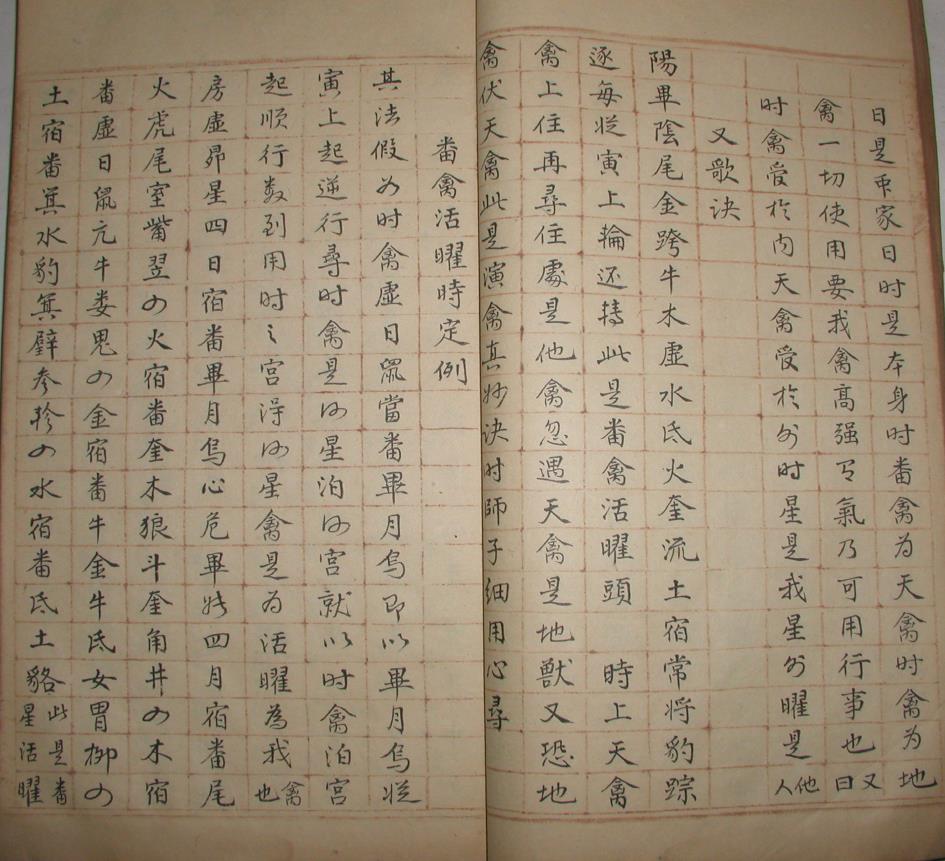 日是本家日时是本身时番禽为天禽时禽为地
禽一切使用要我禽高强有氣乃可用行事也又曰
时禽受於内天禽受於外时星是我星外曜是他人
又歌诀
陽畢陰尾金跨牛木虚水氐火奎流土宿常将豹踪
逐每従寅上輪还轉此是番禽活曜頭 時上天禽
禽上住再尋住處是他禽忽遇天禽是地獸又恐地
禽伏天禽此是演禽真妙决时師子细用心尋
番禽活曜時定例
其法假如时禽虚日鼠當番畢月烏即以畢月烏従
寅上起逆行尋时禽是何星泊何宫就以时禽泊宫
起順行数到用时之宫浔何星禽是为活曜為我禽也
房虚昴星四日宿番畢月烏心危畢张四月宿番尾
火虎尾室觜翌四火宿番奎木狼斗奎角井四木宿
番虚日鼠亢牛娄鬼四金宿番牛金牛氐女胃柳四
土宿番箕水豹箕壁参轸四水宿番氐土貉此是番星活曜